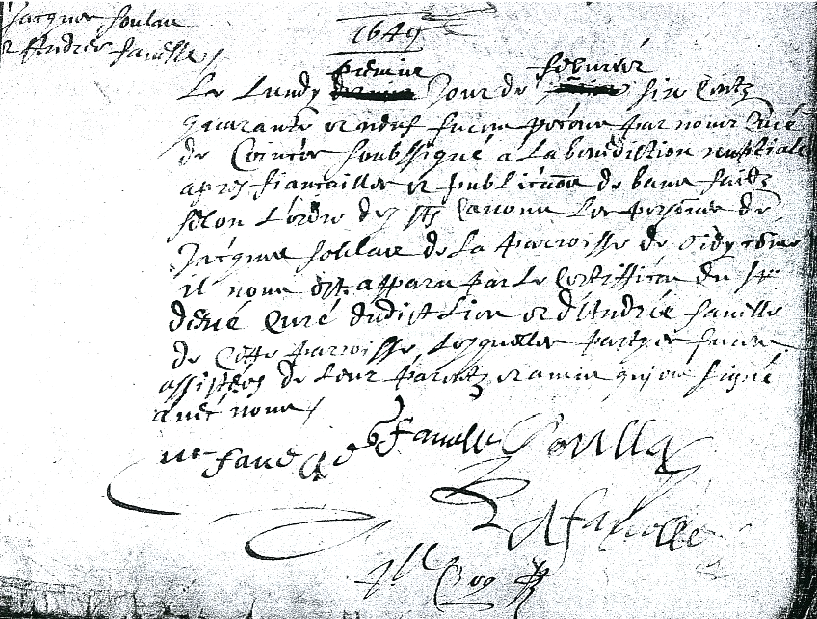 Jacques Soulas
& Andrée Fanelle
1649
premier fébvrier
Le Lundy Jour de six Centz
quarante et neuf furent par nous Curé
de soubssigné a La benediction nuptiale
apres fiancailles et publication de bans faitz
selon L'ordre des stz Canons Les personnes de
Jacques Soulas de La parroisse de come
il nous est apparu par Le Certifficat du Sr
Curé dudict Lieu et d'Andrée Fanelle
de Cette parroisse Lesquelles partyes furent
assistées de Leur parentz et amis qui ont signé
avec nous
Fanelle Soulla
A fanelle